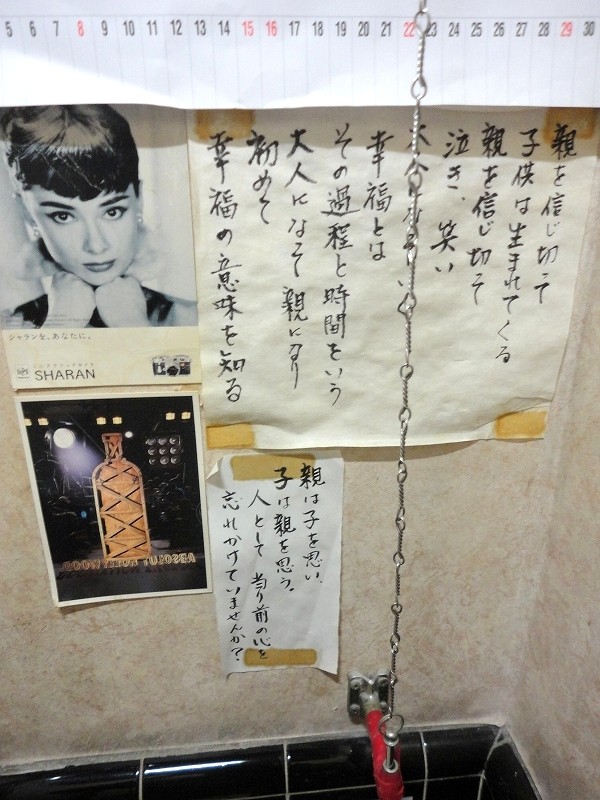 5 6 7 8 9 10 11 12 13 14 15 16 17 18 19 20 21 22 23 24 25 26 27 28 29 30
親を信じ切って
子供は生まれてくる
親を信じ切って
泣き、笑い
幸福とは
その過程と時間をいう
大人になって親になり
初めて
幸福の意味を知る
シャランを、あなたに。
SHARAN
親は子を思い、
子は親を思う。
人として当り前の心を
忘れかけていませんか?